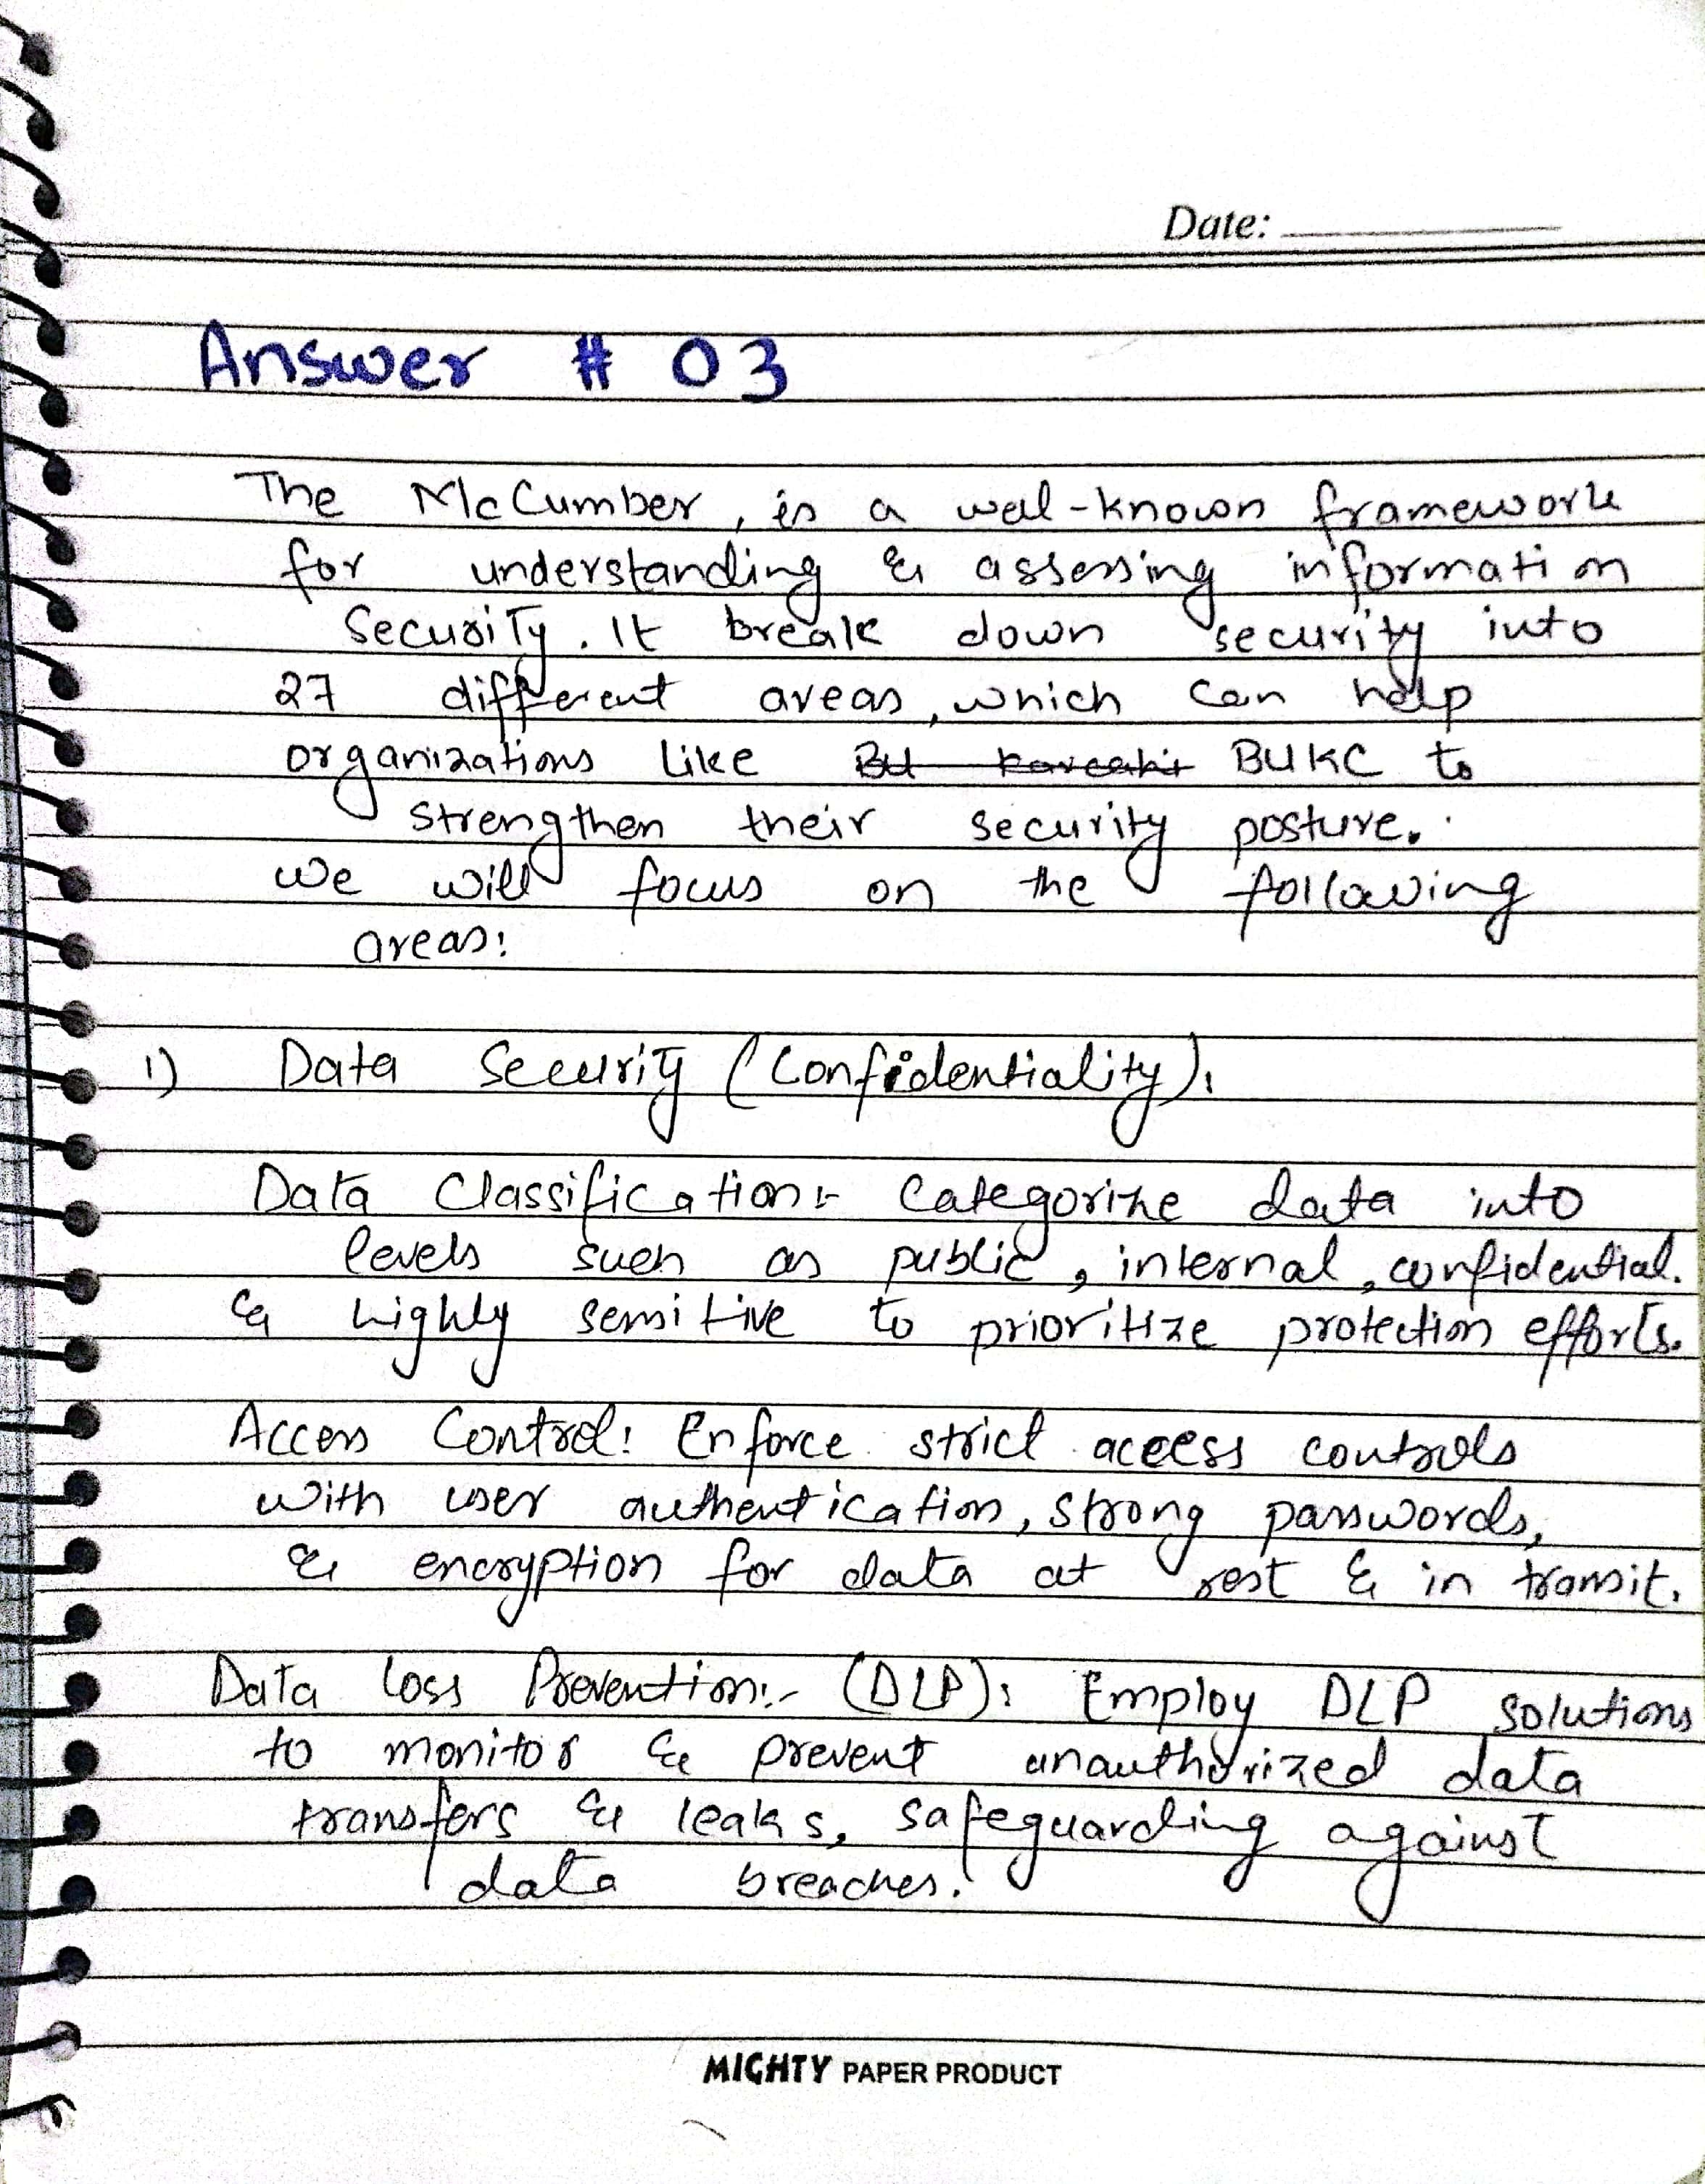 Date:
Answer # 03
The McCumber, is a wel-known framework
for understanding & assessing information
Security. It break down security into
27 different areas, which can help
organizations like BU Karachi BUKC to
strengthen their security posture.
we will focus on the following
areas:
1) Data Security (Confidentiality):
Data Classification:- Categorize data into
levels such as public, internal, confidential.
& highly sensitive to prioritize protection efforts.
Access Control: Enforce strict access controls
with user authentication, strong passwords,
& encryption for data at rest & in transit.
Data Loss Prevention:- (DLP): Employ DLP solutions
to monitor & prevent unauthorized data
transfers & leaks, safeguarding against
data breaches.
MIGHTY PAPER PRODUCT